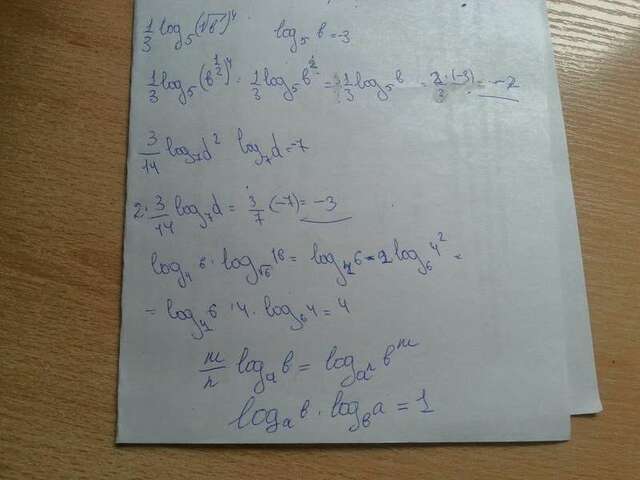 1/3 log₅(√b)⁴ log₅ b = -3
1/3 log₅(b^(1/2))⁴ = 1/3 log₅ b² = 2·1/3 log₅ b = 2/3·(-3) = -2
3/14 log₇ d² log₇ d = -7
2·3/14 log₇ d = 3/7·(-7) = -3
log₄ 6 · log_√6 16 = log₄ 6 · 2 log₆ 4² =
= log₄ 6 · 4 · log₆ 4 = 4
m/n log_a b = log_aⁿ b^m
log_a b · log_b a = 1